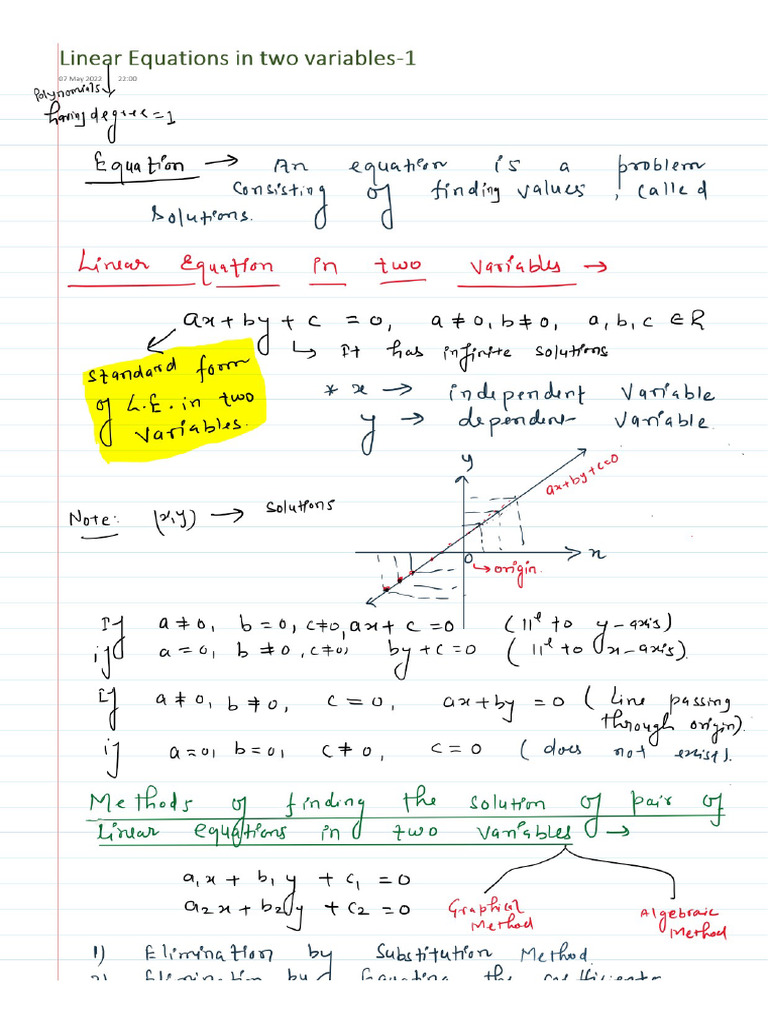 Linear Equations in two variables-1
07 May 2022 22:00
Polynomials
having degree = 1
Equation → An equation is a problem
consisting of finding values, called
solutions.
Linear Equation in two variables →
ax + by + c = 0, a ≠ 0, b ≠ 0, a, b, c ∈ R
↳ It has infinite solutions
standard form
of L.E. in two
variables.
* x → independent variable
y → dependent variable
y
ax+by+c=0
Note: (x,y) → solutions
0
x
↳ origin.
If a ≠ 0, b = 0, c ≠ 0, ax + c = 0 (||el to y-axis)
if a = 0, b ≠ 0, c ≠ 0, by + c = 0 (||el to x-axis).
If a ≠ 0, b ≠ 0, c = 0, ax + by = 0 (Line passing
through origin).
if a = 0, b = 0, c ≠ 0, c = 0 (does not exist).
Methods of finding the solution of pair of
linear equations in two variables →
a₁x + b₁y + c₁ = 0
a₂x + b₂y + c₂ = 0
Graphical
Method
Algebraic
Method
1) Elimination by Substitution Method.
2) Elimination by Equating the coefficients